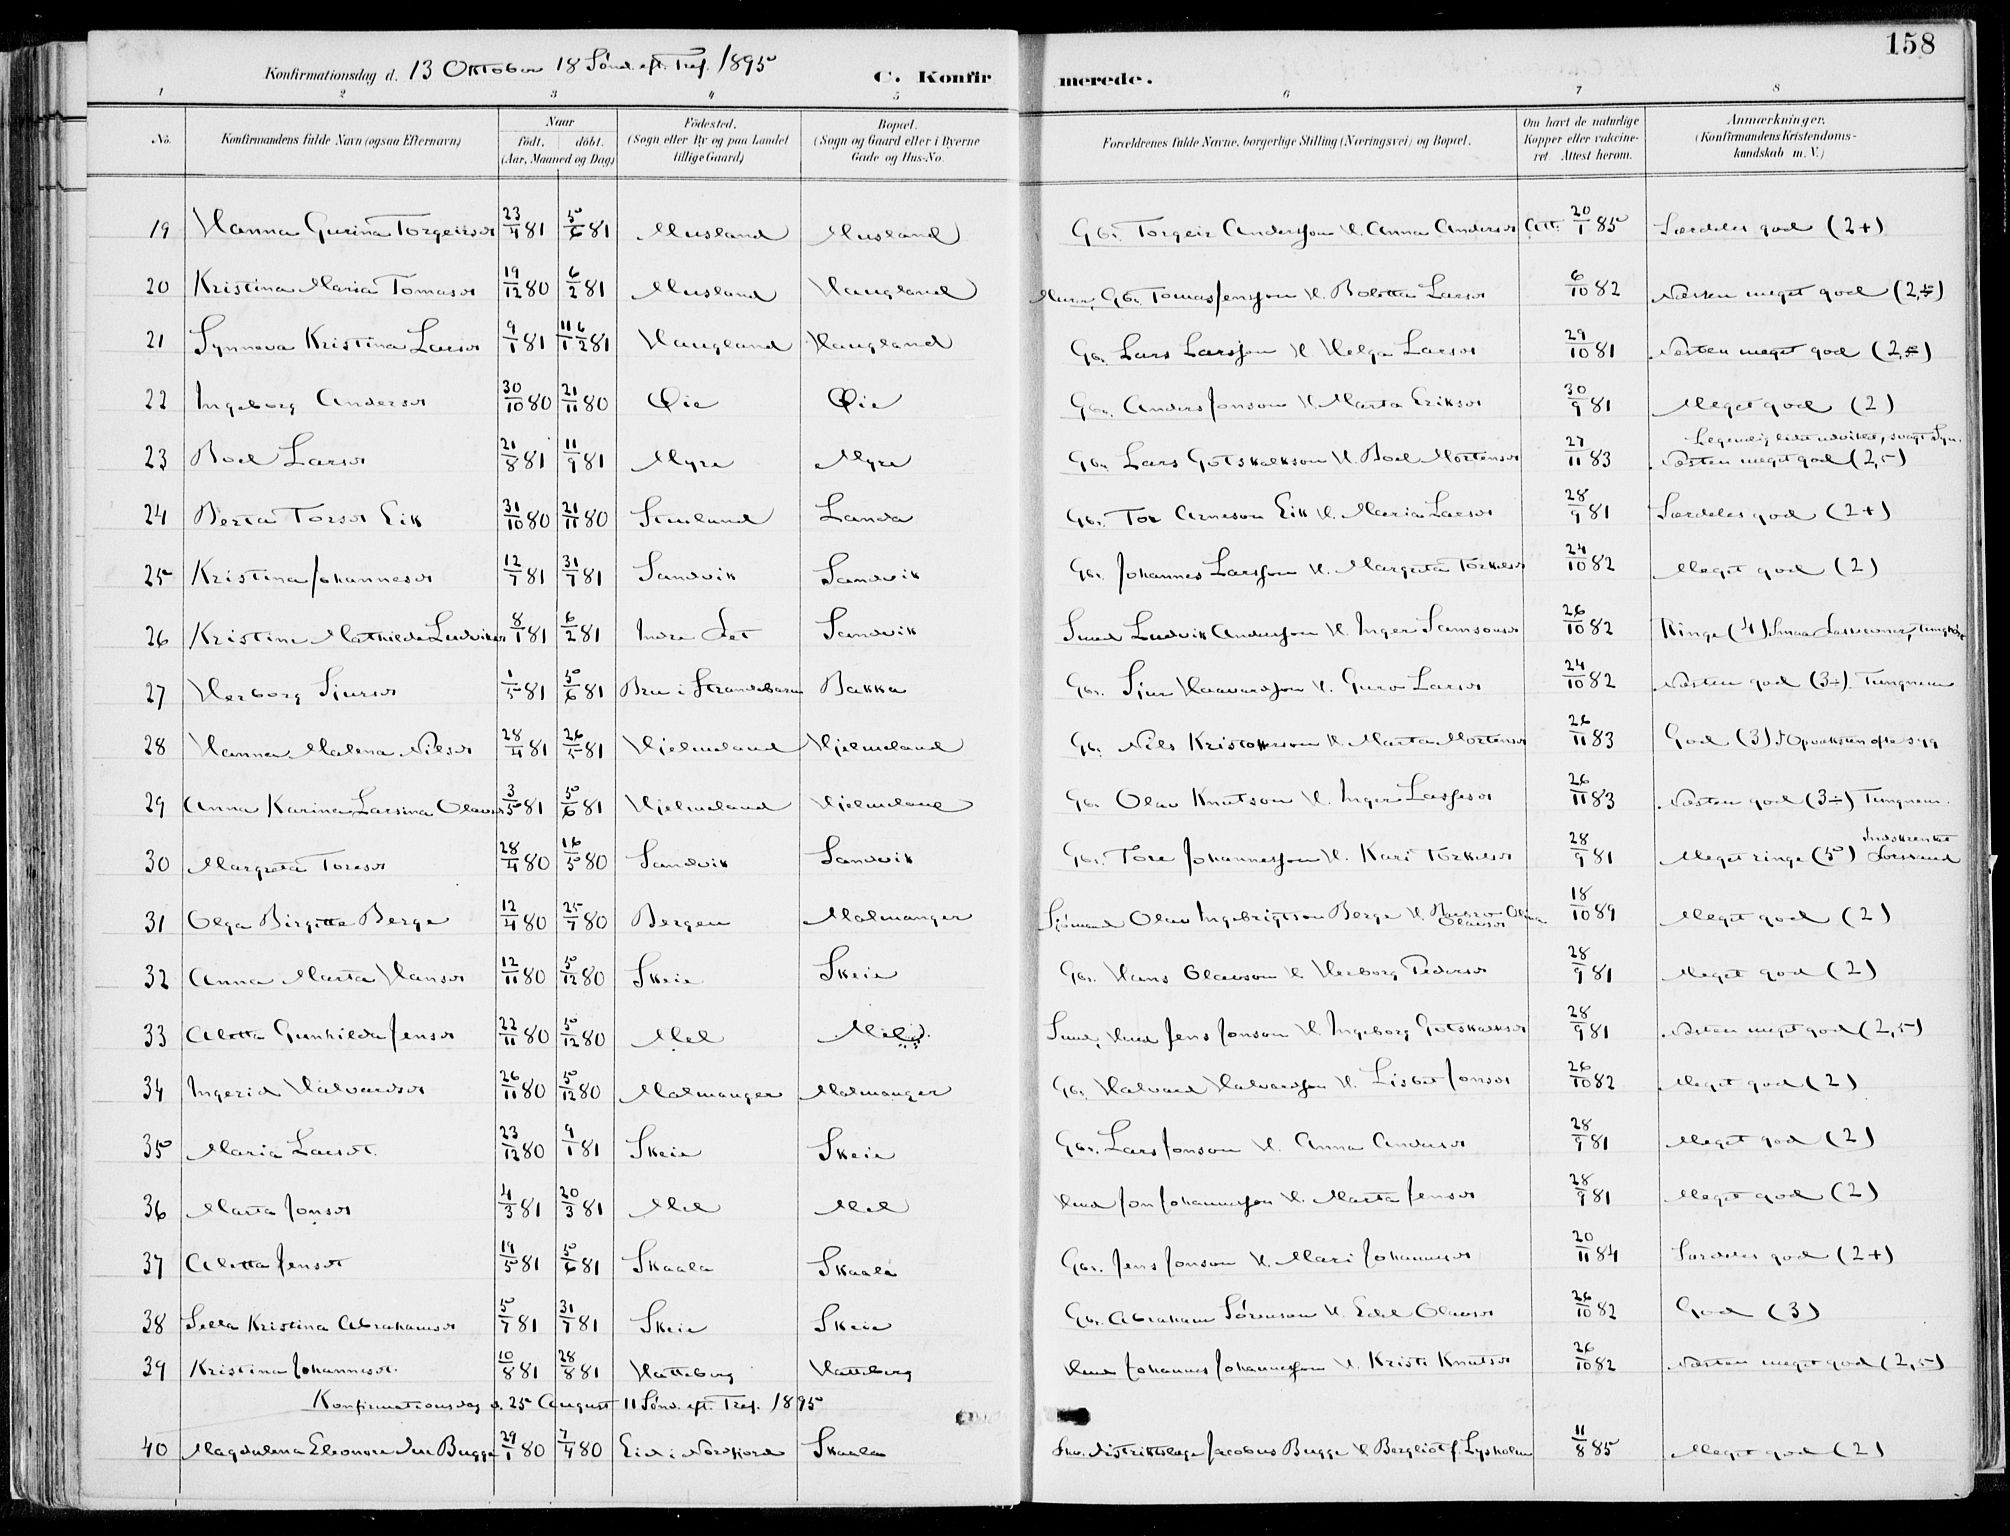 158
Konfirmationsdag d. 13 Oktober 18 Sønd. eft. Tref. 1895
C. Konfirmerede.
1 2 3 4 5 6 7 8
No. Konfirmandens fulde Navn (ogsaa Efternavn) Naar født. døbt. (Aar, Maaned og Dag) Fødested. (Sogn eller By og paa Landet tillige Gaard) Bopæl. (Sogn og Gaard eller i Byerne Gade og Hus-No. Forældrenes fulde Navne, borgerlige Stilling (Næringsvei) og Bopæl. Om havt de naturlige Kopper eller vakcineret. Attest herom. Anmærkninger. (Konfirmandens Kristendomskundskab m. V.)
19 Hanna Gurina Torgeirsdt 23/4 81 5/6 81 Musland Musland Gbr. Torgeir Andersson H. Anna Andersdt Att. 20/1 85 Særdeles god (2+)
20 Kristina Maria Tomasdt 19/12 80 6/2 81 Musland Haugland Gbr. Tomas Jensson H. Bolette Larsdt 6/10 82 Næsten meget god (2,5)
21 Synneva Kristina Larsdt 9/1 81 6/2 81 Haugland Haugland Gbr. Lars Larsson H. Helga Larsdt 29/10 81 Næsten meget god (2,5)
22 Ingeborg Andersdt 30/10 80 21/11 80 Øie Øie Gbr. Anders Jonson H. Marta Eriksdt 30/9 81 Meget god (2)
23 Boel Larsdt 21/8 81 11/9 81 Myre Myre Gbr. Lars Gotskalkson H. Boel Mortensdt 27/11 83 Næsten meget god (2,5) Legemlig lidet udviklet, svagt Syn.
24 Berta Torsdt Eik 31/10 80 21/11 80 Stueland Landa Gbr. Tor Arneson Eik H. Maria Larsdt 28/9 81 Særdeles god (2+)
25 Kristina Johannesdt 12/7 81 31/7 81 Sandvik Sandvik Gbr. Johannes Larsson H. Margreta Torkelsdt 24/10 82 Meget god (2)
26 Kristine Mathilde Ludviksdt 8/1 81 6/2 81 Indre Sandvik Smed Ludvik Andersson H. Inger Samsonsdt 26/10 82 Ringe (4) Smaa
27 Herborg Sjursdt 1/5 81 5/6 81 Bru i Strandebarm Bakka Gbr. Sjur Haavardson H. Guro Larsdt 24/10 82 Næsten god (3÷). Tungnem
28 Hanna Malena Nilsdt 28/4 81 26/5 81 Hjelmeland Hjelmeland Gbr. Nils Kristofferson H. Marta Mortensdt 26/11 83 God (3) I Opvæksten ofte syg
29 Anna Karina Larsina Olavsdt 3/5 81 5/6 81 Hjelmeland Hjelmeland Gbr. Olav Knutson H. Inger Lassesdt 26/11 83 Næsten god (3÷) Tungnem.
30 Margreta Toresdt 28/4 80 16/5 80 Sandvik Sandvik Gbr. Tore Johannesson H. Kari Torkelsdt 28/9 81 Meget ringe (5) Indskrenket Forstand
31 Olga Birgitte Berge 12/4 80 25/7 80 Bergen Malmanger Sjømand Olav Ingebrigtson Berge H. Barbro Olina Olavsdt 18/10 89 Meget god (2)
32 Anna Marta Hansdt 12/11 80 5/12 80 Skeie Skeie Gbr. Hans Olavson H. Herborg Pedersdt 28/9 81 Meget god (2)
33 Aletta Gunhilda Jensdt 22/11 80 5/12 80 Mel Mel Smed, Hmd Jens Jonson H. Ingeborg Gotskalksdt 28/9 81 Næsten meget god (2,5)
34 Ingerid Halvardsdt 26/11 80 5/12 80 Malmanger Malmanger Gbr. Halvard Halvardson H. Lisbet Jonsdt 26/10 82 Meget god (2)
35 Maria Larsdt. 23/12 80 9/1 81 Skeie Skeie Gbr. Lars Jonson H. Anna Andersdt 28/9 81 Meget god (2)
36 Marta Jonsdt 4/3 81 20/3 81 Mel Mel Hmd Jon Johannesson H. Marta Jensdt 28/9 81 Meget god (2)
37 Aletta Jensdt 19/5 81 5/6 81 Skaala Skaala Gbr. Jens Jonson H. Mari Johannesdt 20/11 84 Særdeles god (2+)
38 Sella Kristina Abrahamsdt 5/7 81 31/7 81 Skeie Skeie Gbr. Abraham Sørenson H. Edel Olavsdt 26/10 82 God (3)
39 Kristina Johannesdt. 10/8 81 28/8 81 Hatteberg Hatteberg Hmd Johannes Johannesson H. Kristi Knutsdt 26/10 82 Næsten meget god (2,5)
Konfirmationsdag d. 25 August 11 Sønd. eft. Tref. 1895
40 Magdalena Eleonore Bugge 29/1 80 7/4 80 Eid i Nordfjord Skaala Distriktslæge Jacobus Bugge H. Bergliot f. Lysholm 11/8 85 Meget god (2)